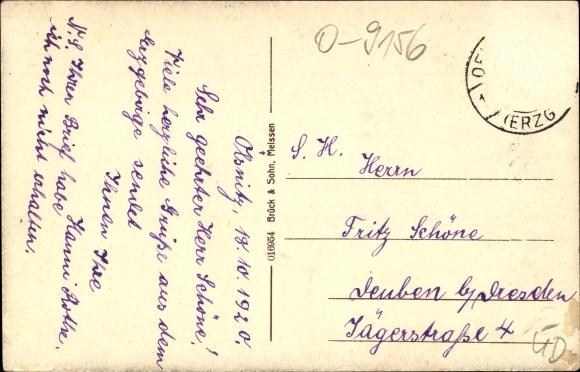 Ölsnitz, 18.10.1920.
Sehr geehrter Herr Schöne!
Viele herzliche Grüße aus dem
Erzgebirge sendet
Ihnen Ihre
Hanni Rothe.
N.S. Ihren Brief habe
ich noch nicht erhalten.
016954 Brück & Sohn, Meissen
O-9156
OE
(ERZG
S. H.
Herrn
Fritz Schöne
Deuben b/Dresden
Jägerstraße 4